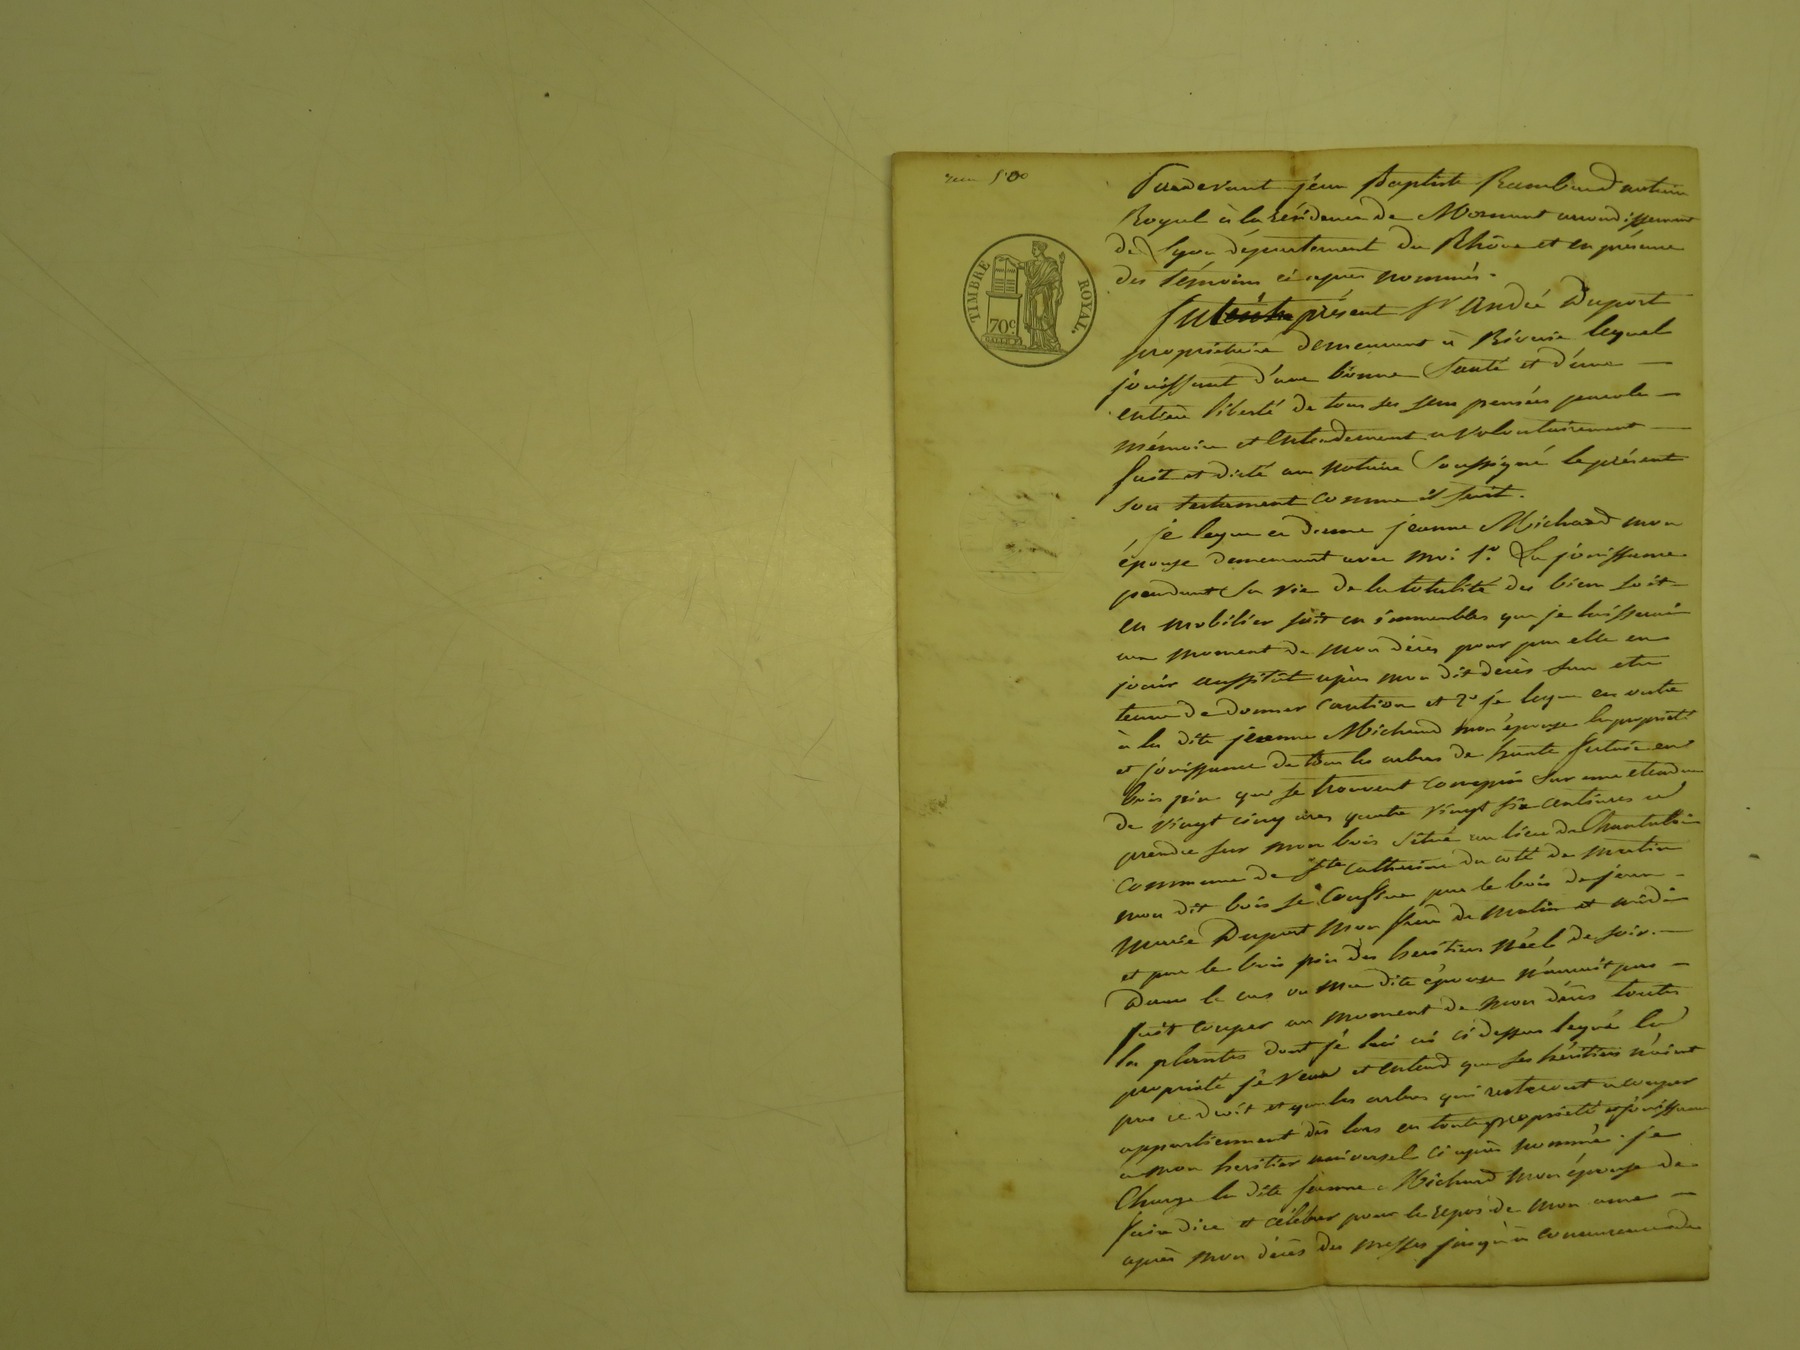 TIMBRE ROYAL.
70c.
Pardevant jean Baptiste Rambaud notaire
Royal à la Résidence de Mornant arrondissement
de Lyon département du Rhône et en présence
des témoins ci après nommés.
fut présent Sr André Duport
propriétaire demeurant à Riverie lequel
jouissant d'une bonne Santé et d'une
entière liberté de tous ses sens pensées parole
mémoire et entendement a volontairement
fait et dicté au notaire Soussigné le présent
son testament comme il suit.
je legue a dame jeanne Michard mon
épouse demeurant avec moi 1o. La jouissance
pendant Sa vie de la totalité des biens soit
en mobilier soit en immeubles que je laisserai
au moment de mon décès pour par elle en
jouir aussitôt après mon dit décès sans etre
tenue de donner Caution et 2o je legue en outre
à la dite jeanne Michard mon épouse la propriété
et jouissance de tous les arbres de haute futaie en
bois pin qui se trouvent compris Sur une etendue
de vingt cinq ares quatre vingt six centiares a
prendre sur mon bois Situé au lieu de
commune de Ste Catherine du coté de matin
mon dit bois se Confine par le bois de jean
marie Duport mon frère de matin et midi
et par le bois pin des heritiers de soir.
Dans le cas ou ma dite épouse n'aurait pas
fait couper au moment de mon décès toutes
les plantes dont je lui ai ci dessus legué la
propriété je veux et entend que ses héritiers n'aient
pas ce droit et que les arbres qui resteront a couper
appartiennent dès lors en toute propriété et jouissance
a mon heritier universel ci après nommé. je
Charge la dite jeanne Michard mon épouse de
faire dire et célébrer pour le repos de mon ame
après mon décès des messes jusqu'à concurrence de